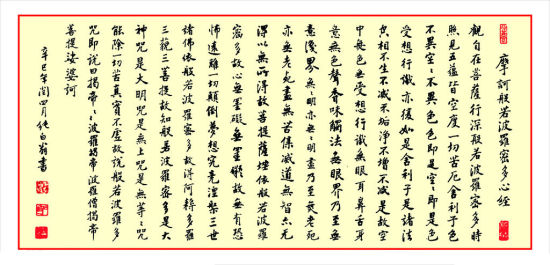 摩訶般若波羅密多心經
觀自在菩薩行深般若波羅密多時
照見五蘊皆空度一切苦厄舍利子色
不異空〻不異色色即是空〻即是色
受想行識亦復如是舍利子是諸法
空相不生不滅不垢不淨不增不減是故空
中無色無受想行識無眼耳鼻舌身
意無色聲香味觸法無眼界乃至無
意識界無〻明亦無〻明盡乃至無老死
亦無老死盡無苦集滅道無智亦無
得以無所得故菩提薩埵依般若波羅
密多故心無罣礙無罣礙故無有恐
怖遠離一切顛倒夢想究竟涅槃三世
諸佛依般若波羅密多故得阿耨多羅
三藐三菩提故知般若波羅密多是大
神咒是大明咒是無上咒是無等〻咒
能除一切苦真實不虛故說般若波羅多
咒即說曰揭帝〻波羅揭帝波羅僧揭帝
菩提娑婆訶
辛巳年閏四月 書